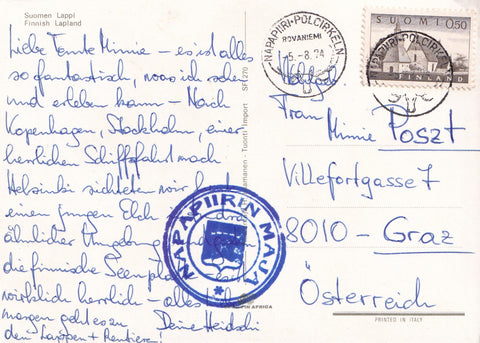 Suomen Lappi
Finnish Lapland
Liebe Tante Minnie – es ist alles
so fantastisch, was ich sehen
und erleben kann – Nach
Kopenhagen, Stockholm, einer
herrlichen Schiffsfahrt nach
Helsinki sichteten wir heute
einen jungen Elch
ähnlicher Umgebung
die finnische Seenplatte
wirklich herrlich – alles
morgen geht es zu
den Lappen + Rentiere!
Deine Heidschi
NAPAPIIRI-POLCIRKELN
ROVANIEMI
5.-8.74
SUOMI 0,50
FINLAND
NAPAPIIRI-POLCIRKELN
Frau
Minnie Poszt
Villefortgasse 7
8010 – Graz
Österreich
NAPAPIIRIN MAJA
SF 1270
Tuonti Import
PRINTED IN ITALY